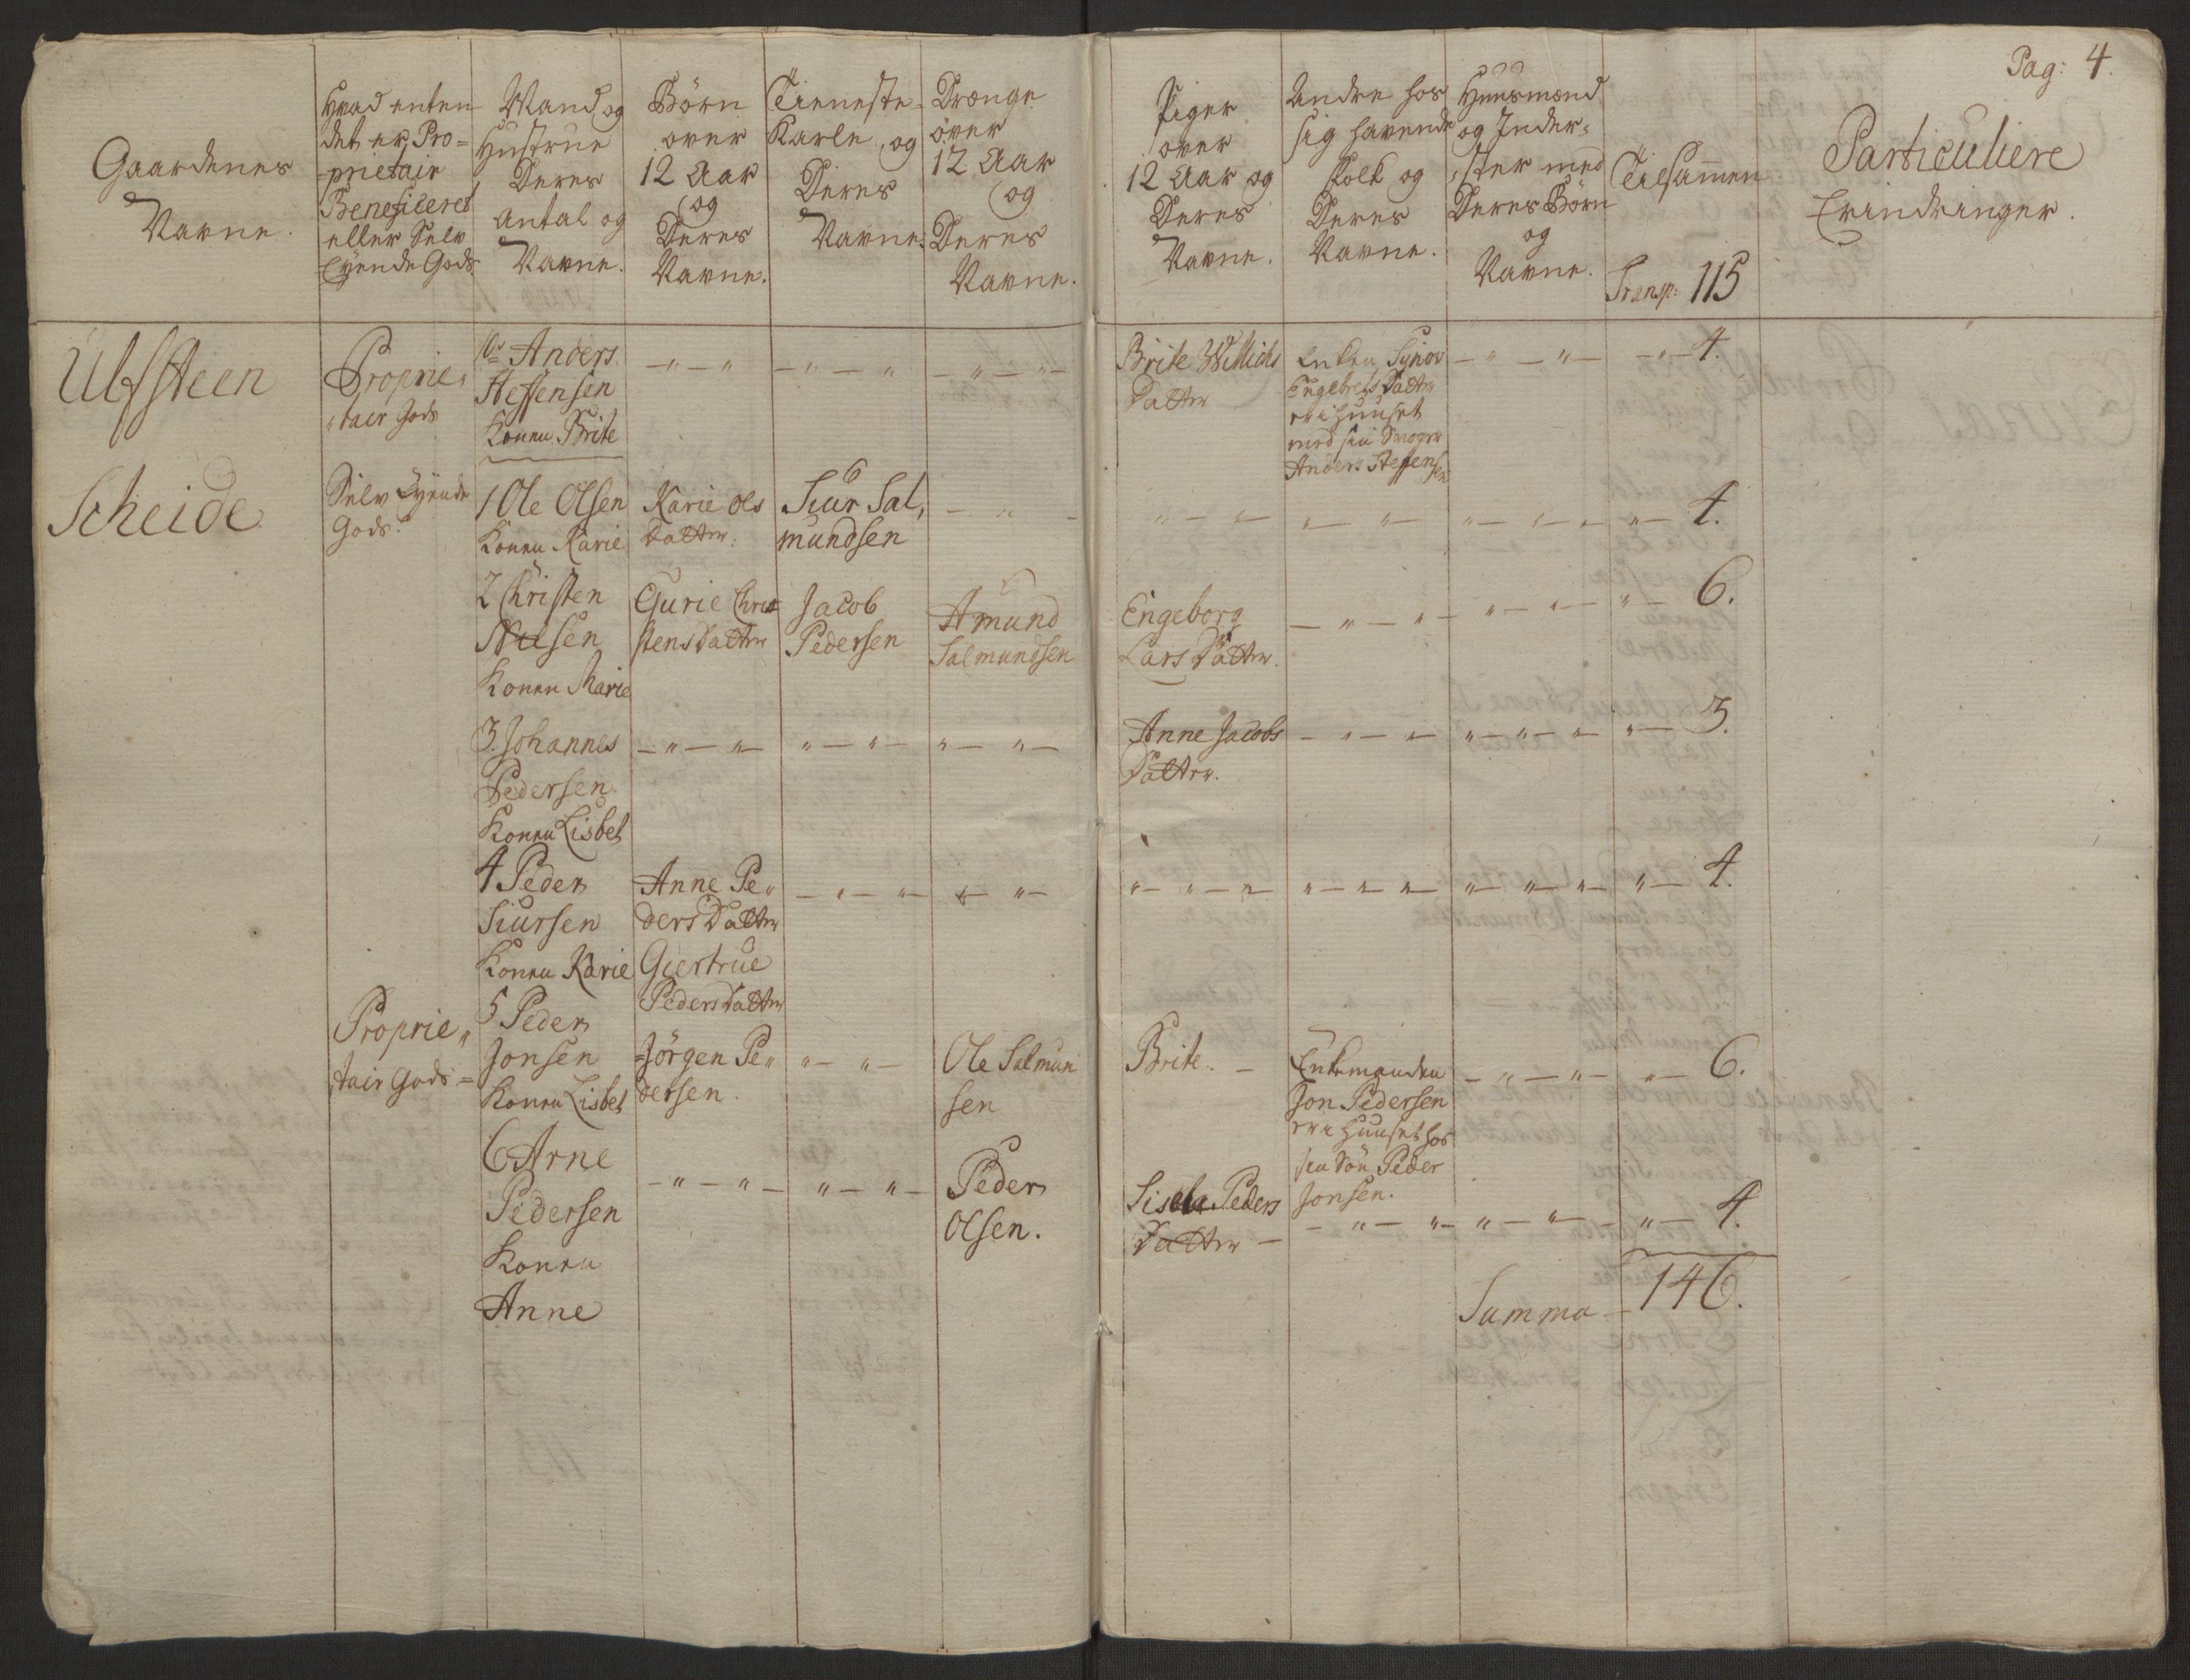 Pag: 4.
Gaardenes
Navne.
Hvad enten
det er Pro=
=prietair
Beneficeret
eller Selv
Eyende Gods
Mand og
Hustrue
Deres
Antal og
Navne.
Børn
over
12 Aar
og
Deres
Navne.
Tieneste
Karle, og
Deres
Navne.
Drænge
over
12 Aar
og
Deres
Navne.
Piger
over
12 Aar og
Deres
Navne.
Andre hos
sig havende
Folk og
Deres
Navne.
Huusmænd
og Inder=
ster med
Deres Börn
og
Navne.
Tilsammen
Transp: 115
Particuliere
Erindringer.
Ulfsteen
Proprie„
„tair Gods
Anders
Steffensen
Konen Brite
—„—„ —„—„ —„—„—
Brite Willichs
Datter
Enken Synov
Engebrets Datter
er i Huuset
med sin Svoger
Anders Steffensen
—„—„— —„— 4.
Scheide
Selv Eyende
Gods.
1 Ole Olsen
Konen Karie
Karie Ols
Datter.
Siur Sal„
mundsen
— „ — 4.
2 Christen
Nilsen
Konen Marie
Gurie Chri
stens Datter
Jacob
Pedersen
Amund
Salmundsen
Engeborg
Lars Datter.
—„—„— „—„—„— 6.
3. Johannes
Pedersen
Konen Lisbet
—„—„— „—„— „—„—
Anne Jacobs
Datter.
—„—„— „—„—„— 3.
4 Peder
Siursen
Konen Karie
Anne Pe„
ders Datter
Giertrue
Peders Datter
—„—„— „—„— „—„—„— 4.
Proprie„
tair Gods=
5 Peder
Jonsen
Konen Lisbet
Jörgen Pe„
dersen.
„—„—
Ole Salmun
sen
Brite. —
Enkemanden
Jon Pedersen
er i Huuset hos
sin Sön Peder
Jonsen.
—„—„— „— 6.
6 Arne
Pedersen
Konen
Anne
—„—„— „—„—
Peder
Olsen.
Peders
Datter —
—„—„— „—„— „— 4.
Summa — 146.